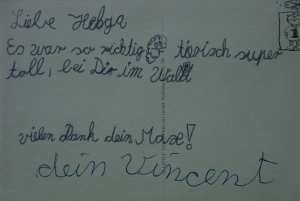 Liebe Helga
Es war so richtig törisch super
toll, bei Dir im Wald
vielen Dank dein Max!
dein Vincent